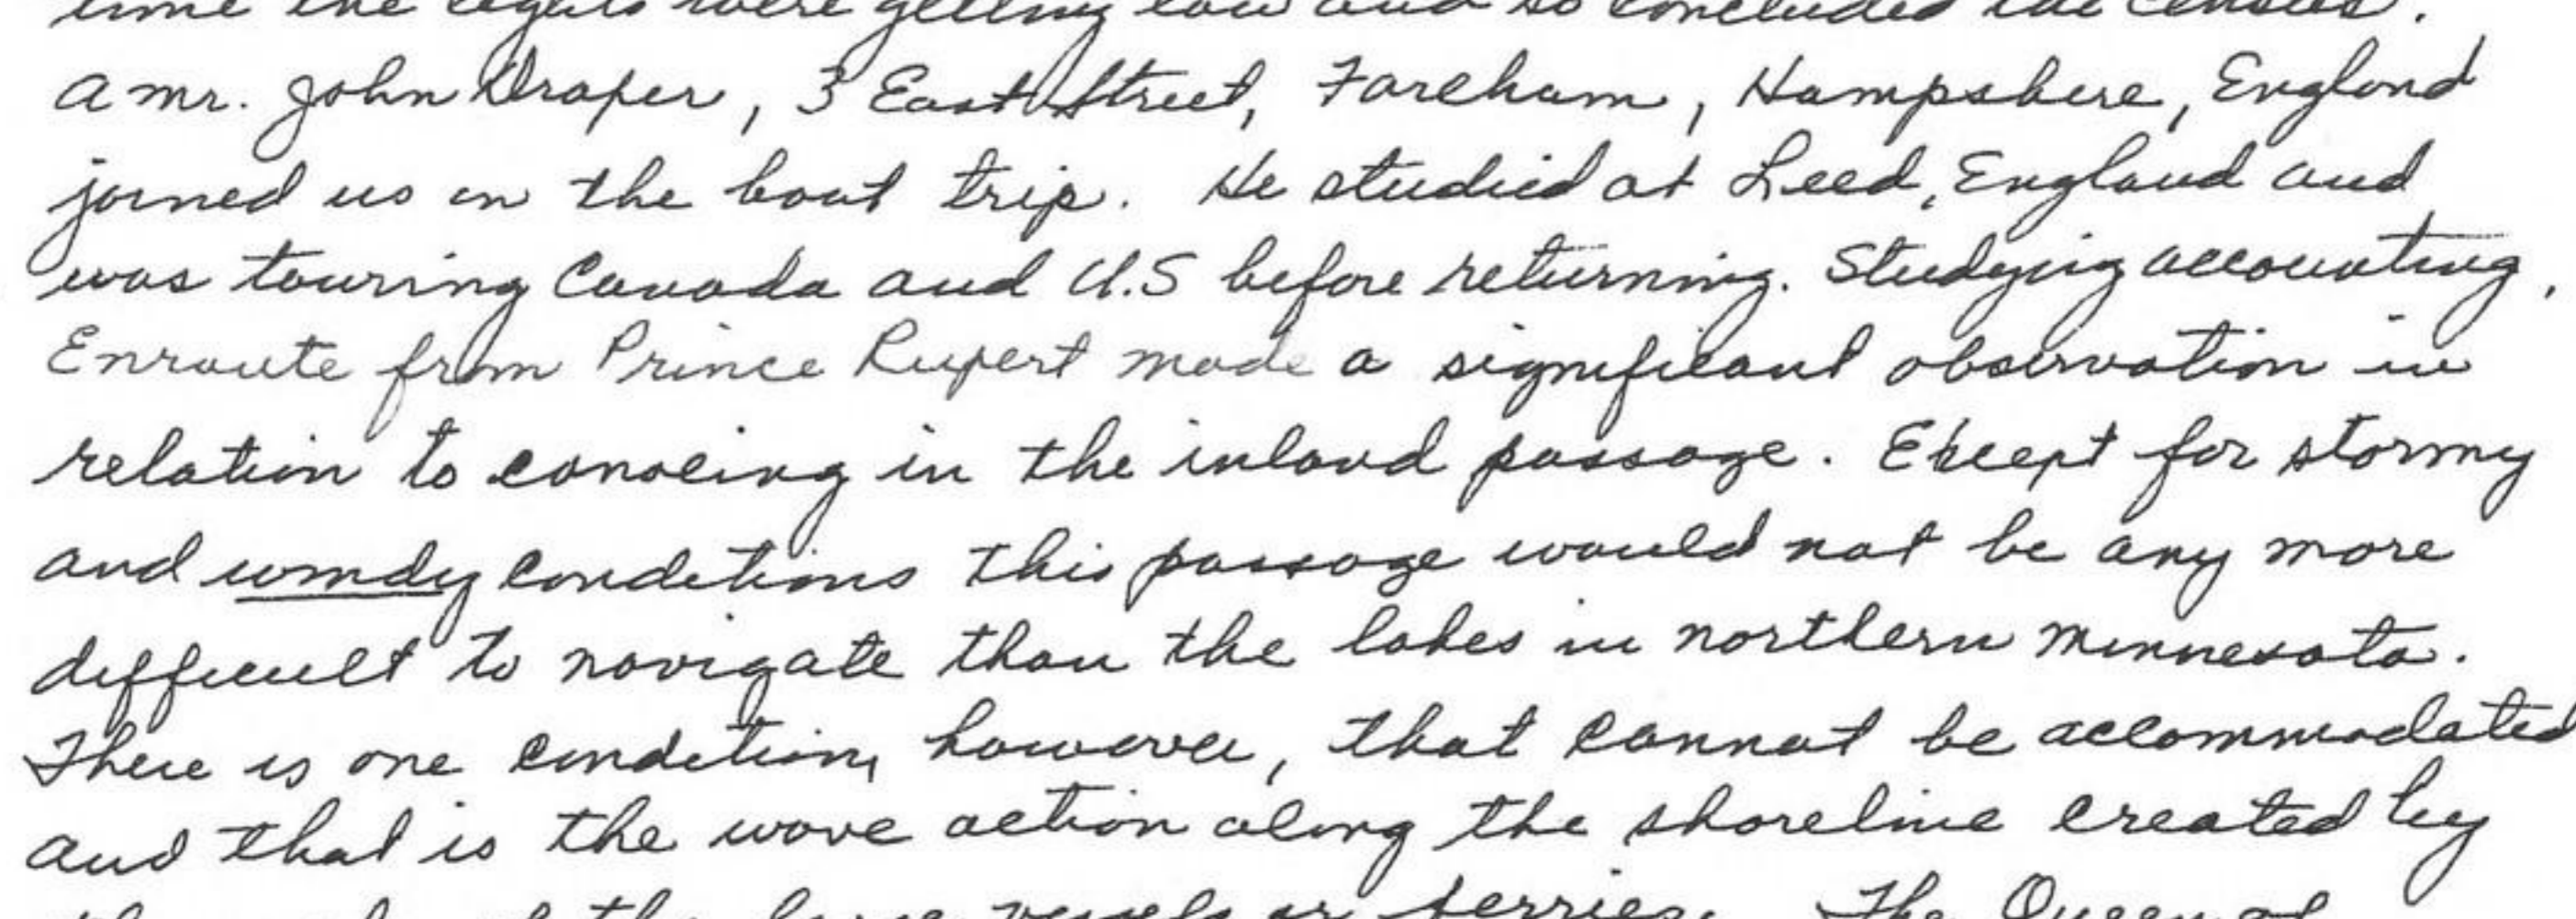 time the lights were getting low and so concluded the census.
A Mr. John Draper, 3 East Street, Fareham, Hampshire, England
joined us on the boat trip. He studied at Leed, England and
was touring Canada and U.S before returning. Studying accounting,
Enroute from Prince Rupert made a significant observation in
relation to canoeing in the inland passage. Except for stormy
and windy conditions this passage would not be any more
difficult to navigate than the lakes in northern Minnesota.
There is one condition, however, that cannot be accommodated
and that is the wave action along the shoreline created by
the large vessels or ferries. The Queen of